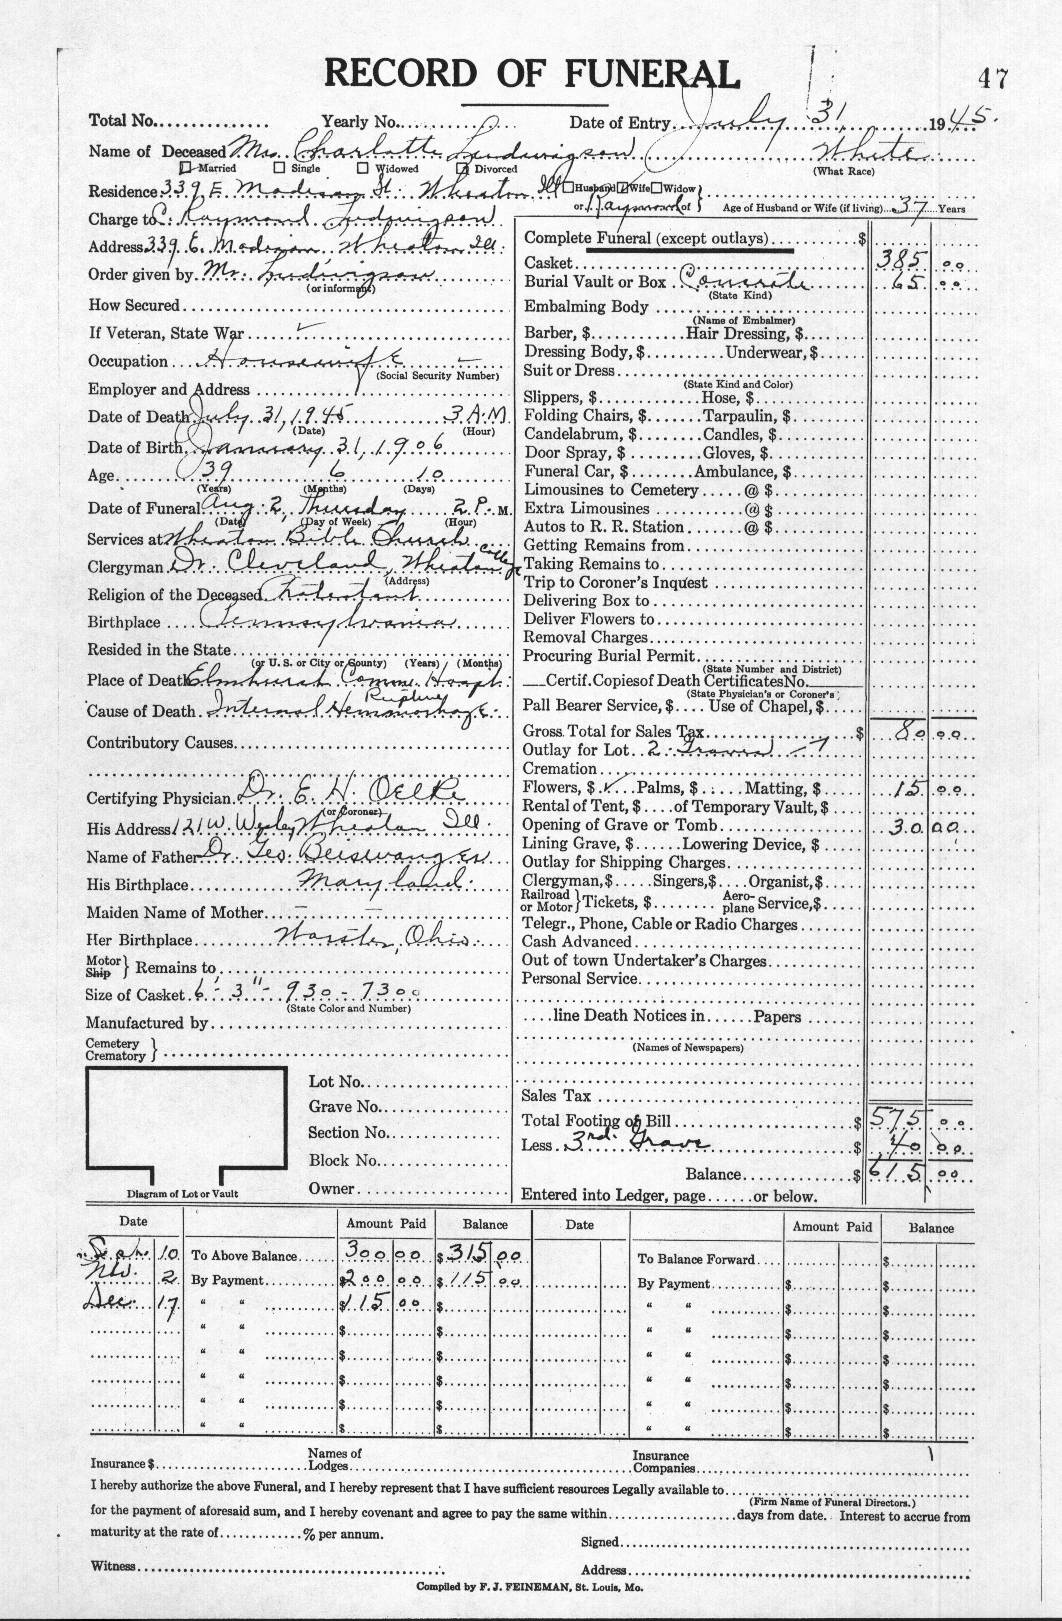 RECORD OF FUNERAL
47
Total No. Yearly No. Date of Entry July 31 1945.
Name of Deceased Mrs. Charlotte Ludwigson White
Married Single Widowed Divorced (What Race)
Residence 339 E. Madison St. Wheaton Ill Husband Wife Widow
or Raymond of Age of Husband or Wife (if living) 37 Years
Charge to C. Raymond Ludwigson
Address 339 E. Madison, Wheaton Ill.
Order given by Mr. Ludwigson
(or informant)
How Secured
If Veteran, State War
Occupation Housewife
(Social Security Number)
Employer and Address
Date of Death July 31, 1945 3 A.M
(Date) (Hour)
Date of Birth January 31, 1906
Age 39 6 10
(Years) (Months) (Days)
Date of Funeral Aug. 2, Thursday 2 P. M.
(Date) (Day of Week) (Hour)
Services at Wheaton Bible Church
Clergyman Dr. Cleveland, Wheaton College
(Address)
Religion of the Deceased Protestant
Birthplace Pennsylvania
Resided in the State
(or U. S. or City or County) (Years) (Months)
Place of Death Elmhurst Comm. Hospt.
Cause of Death Internal Hemmorhage
Contributory Causes
Certifying Physician Dr. E. H. Oelke
(or Coroner)
His Address 121 W. Wesley Wheaton Ill.
Name of Father Dr. Geo. Beiswanger
His Birthplace Maryland
Maiden Name of Mother — —
Her Birthplace Wooster, Ohio
Motor Ship } Remains to
Size of Casket 6' - 3" - 930 - 7300
(State Color and Number)
Manufactured by
Cemetery
Crematory }
Lot No.
Grave No.
Section No.
Block No.
Owner
Diagram of Lot or Vault
Complete Funeral (except outlays) $
Casket 385 00
Burial Vault or Box Concrete 65 00
(State Kind)
Embalming Body
(Name of Embalmer)
Barber, $ Hair Dressing, $
Dressing Body, $ Underwear, $
Suit or Dress
(State Kind and Color)
Slippers, $ Hose, $
Folding Chairs, $ Tarpaulin, $
Candelabrum, $ Candles, $
Door Spray, $ Gloves, $
Funeral Car, $ Ambulance, $
Limousines to Cemetery @ $
Extra Limousines @ $
Autos to R. R. Station @ $
Getting Remains from
Taking Remains to
Trip to Coroner's Inquest
Delivering Box to
Deliver Flowers to
Removal Charges
Procuring Burial Permit
(State Number and District)
Certif. Copies of Death Certificates No.
(State Physician's or Coroner's)
Pall Bearer Service, $ Use of Chapel, $
Gross Total for Sales Tax $ 80 00
Outlay for Lot 2 Graves
Cremation
Flowers, $ Palms, $ Matting, $ 15 00
Rental of Tent, $ of Temporary Vault, $
Opening of Grave or Tomb 30 00
Lining Grave, $ Lowering Device, $
Outlay for Shipping Charges
Clergyman, $ Singers, $ Organist, $
Railroad or Motor } Tickets, $ Aeroplane Service, $
Telegr., Phone, Cable or Radio Charges
Cash Advanced
Out of town Undertaker's Charges
Personal Service
line Death Notices in Papers
(Names of Newspapers)
Sales Tax
Total Footing of Bill $ 575 00
Less 3rd. Grave $ 40 00
Balance $ 615 00
Entered into Ledger, page or below.
Date Amount Paid Balance Date Amount Paid Balance
10 To Above Balance 300 00 $ 315 00 To Balance Forward $
Nov. 2 By Payment $ 200 00 $ 115 00 By Payment $ $
Dec. 17 " " $ 115 00 $ " " $ $
" " $ $ " " $ $
" " $ $ " " $ $
" " $ $ " " $ $
" " $ $ " " $ $
" " $ $ " " $ $
Insurance $ Names of Lodges Insurance Companies
I hereby authorize the above Funeral, and I hereby represent that I have sufficient resources Legally available to
(Firm Name of Funeral Directors.)
for the payment of aforesaid sum, and I hereby covenant and agree to pay the same within days from date. Interest to accrue from
maturity at the rate of % per annum.
Signed
Witness Address
Compiled by F. J. FEINEMAN, St. Louis, Mo.